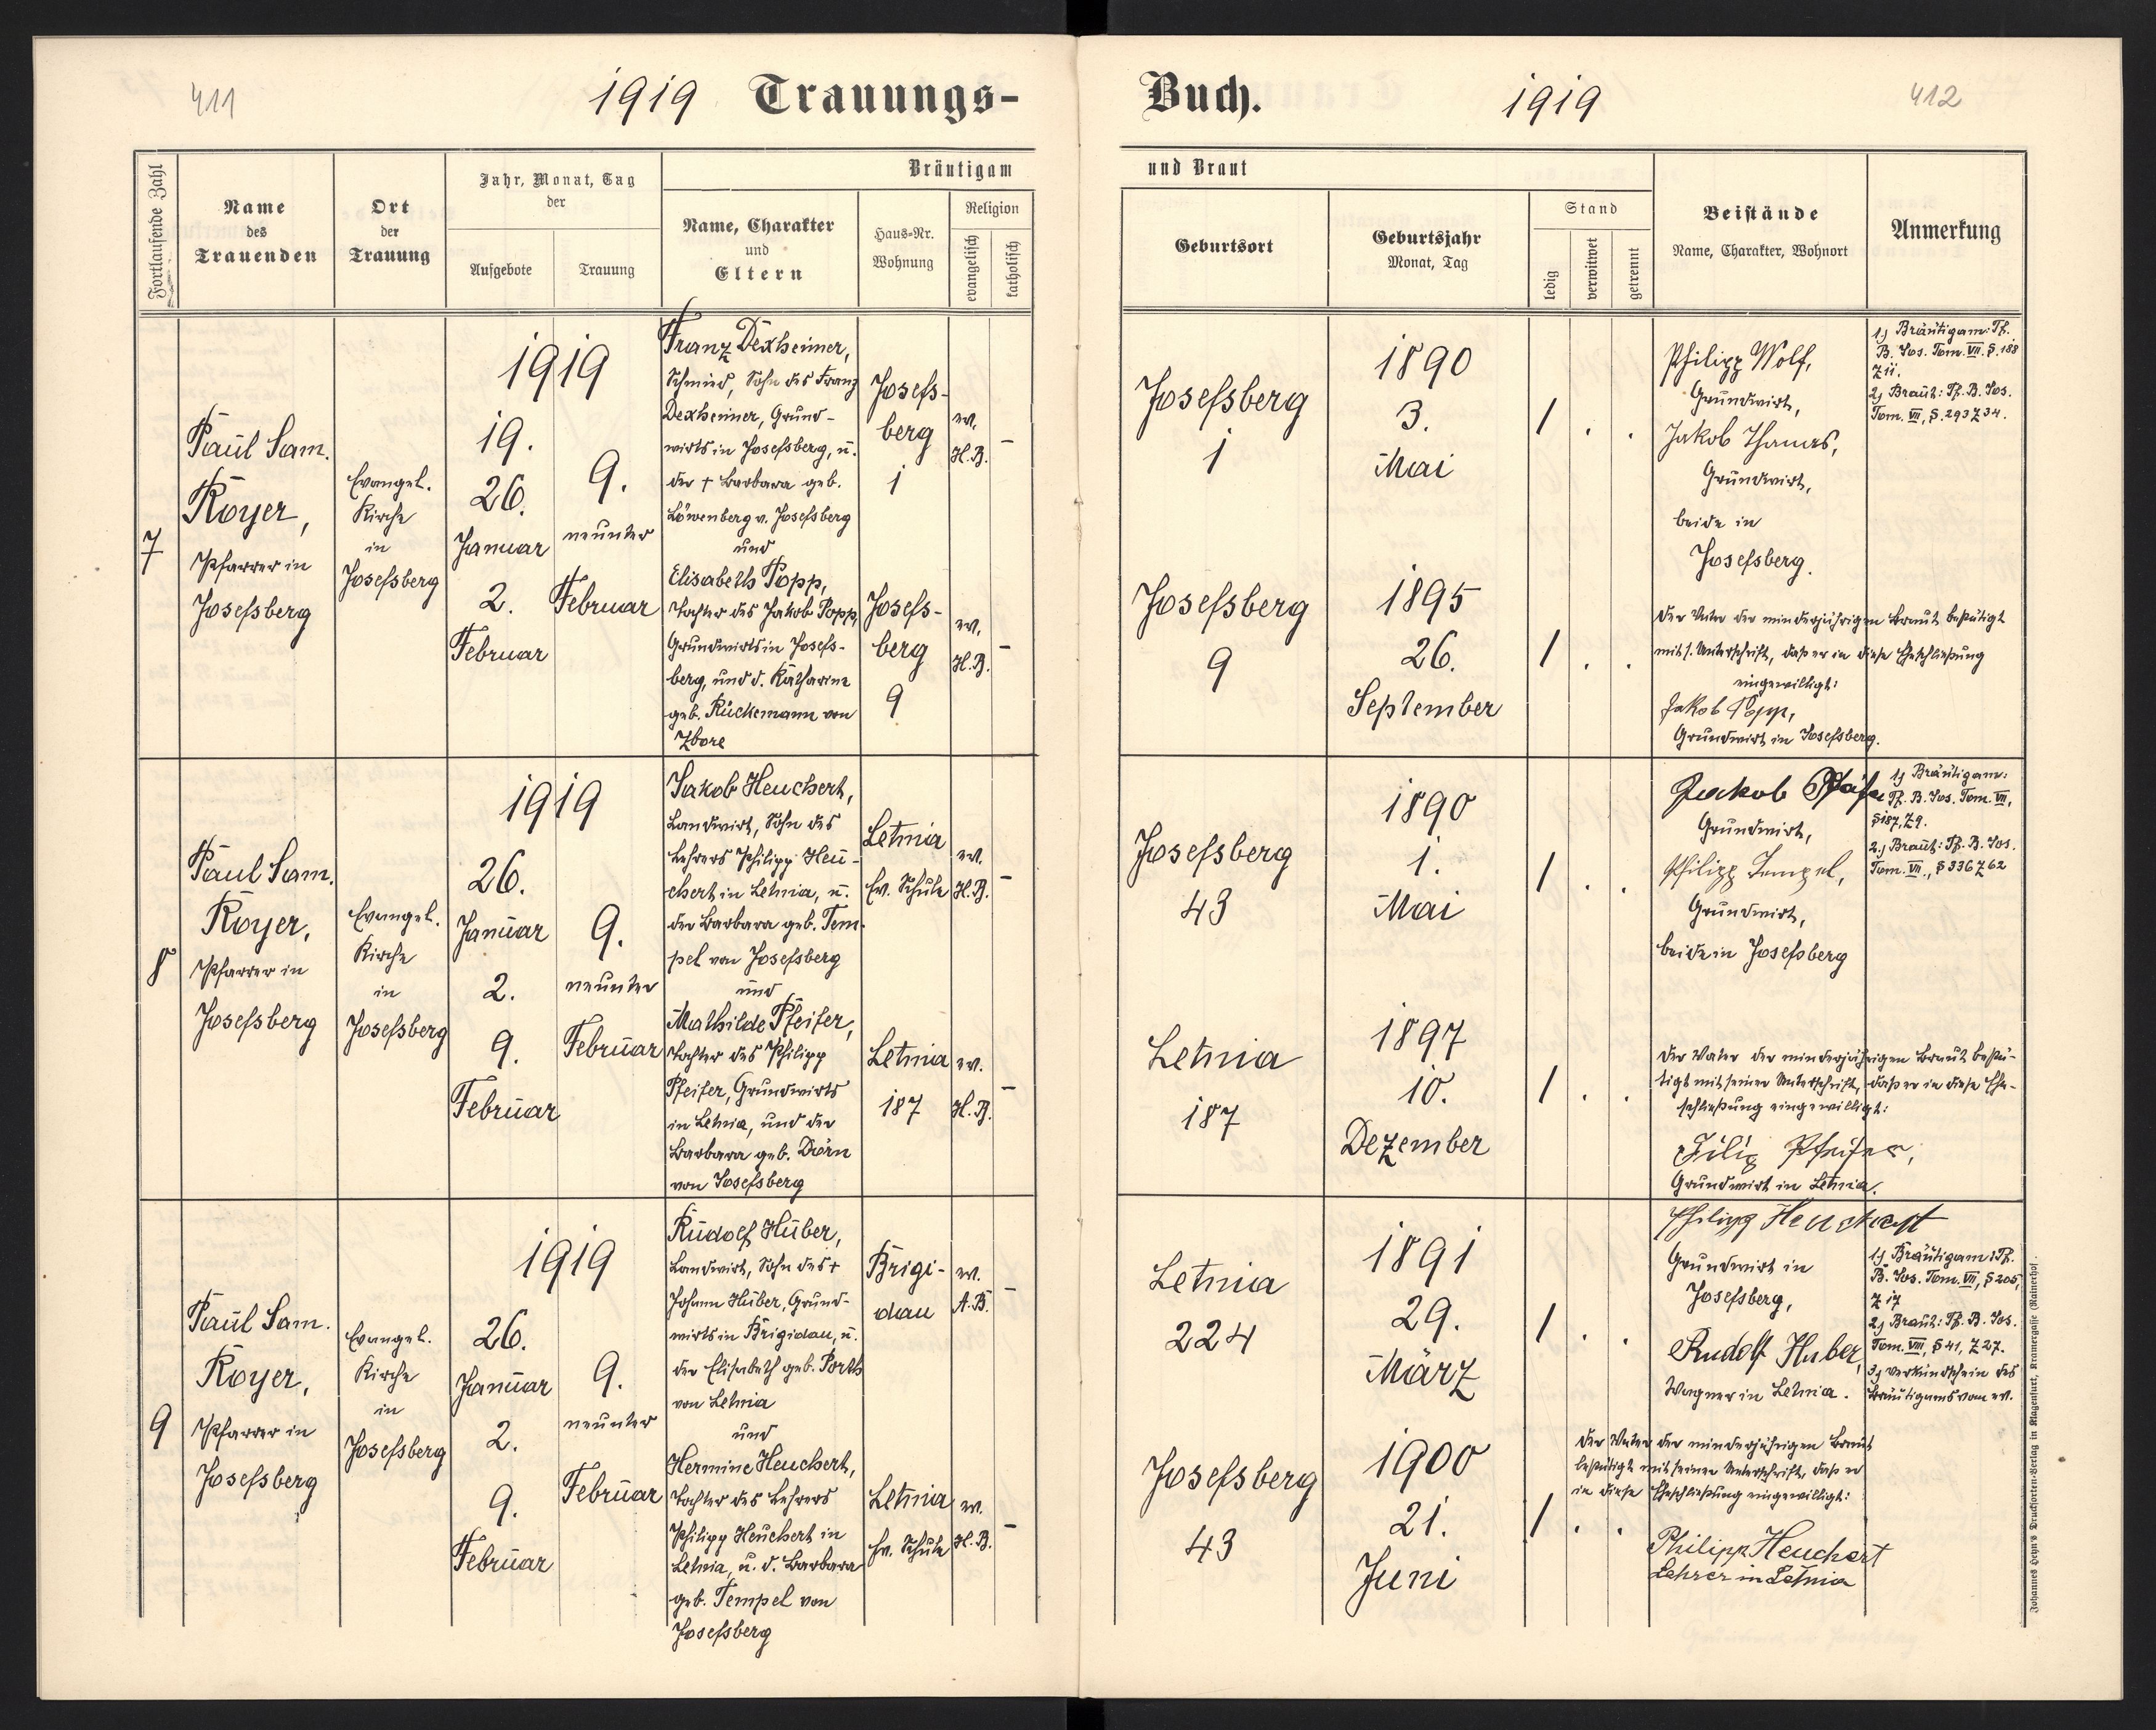 411
1919 Trauungs-
Fortlaufende Zahl
Name
des
Trauenden
Ort
der
Trauung
Jahr, Monat, Tag
der
Aufgebote
Trauung
Bräutigam
Name, Charakter
und
Eltern
Haus-Nr.
Wohnung
Religion
evangelisch
katholisch
7
Paul Sam.
Royer,
Pfarrer in
Josefsberg
Evangel.
Kirche
in
Josefsberg
1919
19.
26.
Januar
2.
Februar
9.
neunter
Februar
Franz Dexheimer,
Schmied, Sohn des Franz
Dexheimer, Grund-
wirts in Josefsberg, u.
der † Barbara geb.
Löwenberg v. Josefsberg
und
Elisabeth Popp,
Tochter des Jakob Popp,
Grundwirts in Josefs-
berg, und d. Katharine
geb. Rückemann von
Ybore
Josefs-
berg
1
ev.
H.B.
–
Josefs-
berg
9
ev.
H.B.
–
8
Paul Sam.
Royer,
Pfarrer in
Josefsberg
Evangel.
Kirche
in
Josefsberg
1919
26.
Januar
2.
9.
Februar
9.
neunter
Februar
Jakob Heuchert,
Landwirt, Sohn des
Lehrers Philipp Heu-
chert in Letnia, u.
der Barbara geb. Tem-
pel von Josefsberg
und
Mathilde Pfeifer,
Tochter des Philipp
Pfeifer, Grundwirts
in Letnia, und der
Barbara geb. Dörn
von Josefsberg
Letnia
Ev. Schule
ev.
H.B.
–
Letnia
187
ev.
H.B.
–
9
Paul Sam.
Royer,
Pfarrer in
Josefsberg
Evangel.
Kirche
in
Josefsberg
1919
26.
Januar
2.
9.
Februar
9.
neunter
Februar
Rudolf Huber,
Landwirt, Sohn des †
Johann Huber, Grund-
wirts in Brigidau, u.
der Elisabeth geb. Porth
von Letnia
und
Hermine Heuchert,
Tochter des Lehrers
Philipp Heuchert in
Letnia, u. d. Barbara
geb. Tempel von
Josefsberg
Brigi-
dau
ev.
A.B.
–
Letnia
Ev. Schule
ev.
H.B.
–
Buch.
1919
412
und Braut
Geburtsort
Geburtsjahr
Monat, Tag
Stand
ledig
verwitwet
getrennt
Beistände
Name, Charakter, Wohnort
Anmerkung
Josefsberg
1
1890
3.
Mai
1 . .
Philipp Wolf,
Grundwirt,
Jakob Thomas,
Grundwirt,
beide in
Josefsberg.
1) Bräutigam: Tf.
B. Jos. Tom. VII. S. 188
Z 11.
2) Braut: Tf. B. Jos.
Tom. VII, S. 293 Z 34.
Josefsberg
9
1895
26.
September
1 . .
Der Vater der minderjährigen Braut bestätigt
mit s. Unterschrift, daß er in diese Eheschließung
eingewilligt:
Jakob Popp,
Grundwirt in Josefsberg.
Josefsberg
43
1890
1.
Mai
1 . .
Jakob
Grundwirt,
Philipp Tempel,
Grundwirt,
beide in Josefsberg
1) Bräutigam:
Tf. B. Jos. Tom. VII,
S 187, Z 9.
2.) Braut: Tf. B. Jos.
Tom. VII., S 336 Z 62
Letnia
187
1897
10.
Dezember
1 . .
Der Vater der minderjährigen Braut bestä-
tigt mit seiner Unterschrift, daß er in diese Ehe-
schließung eingewilligt:
Filip Pfeifer,
Grundwirt in Letnia.
Letnia
224
1891
29.
März
1 . .
Philipp Heuchert
Grundwirt in
Josefsberg,
Rudolf Huber,
Wagner in Letnia.
1) Bräutigam: Tf.
B. Jos. Tom. VII, S 205,
Z 17
2) Braut: Tf. B. Jos.
Tom. VIII, S 41, Z 27.
3) Verkündschein des
Bräutigams vom ev.
Josefsberg
43
1900
21.
Juni
1 . .
Der Vater der minderjährigen Braut
bestätigt mit seiner Unterschrift, daß er
in diese Eheschließung eingewilligt:
Philipp Heuchert
Lehrer in Letnia
Johannes Heyn's Drucksorten-Verlag in Klagenfurt, Kramergasse (Rainerhof).